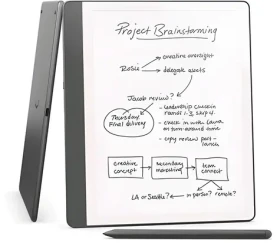 Project Brainstorming
creative oversight
Rosie
delegate assets
Jacob review?
Thursday
Final delivery
- leadership check in
- check in with
on turn-around time
- copy review post-
launch
creative
concept
secondary
marketing
team
connect
LA or Seattle?
in person?
remote?